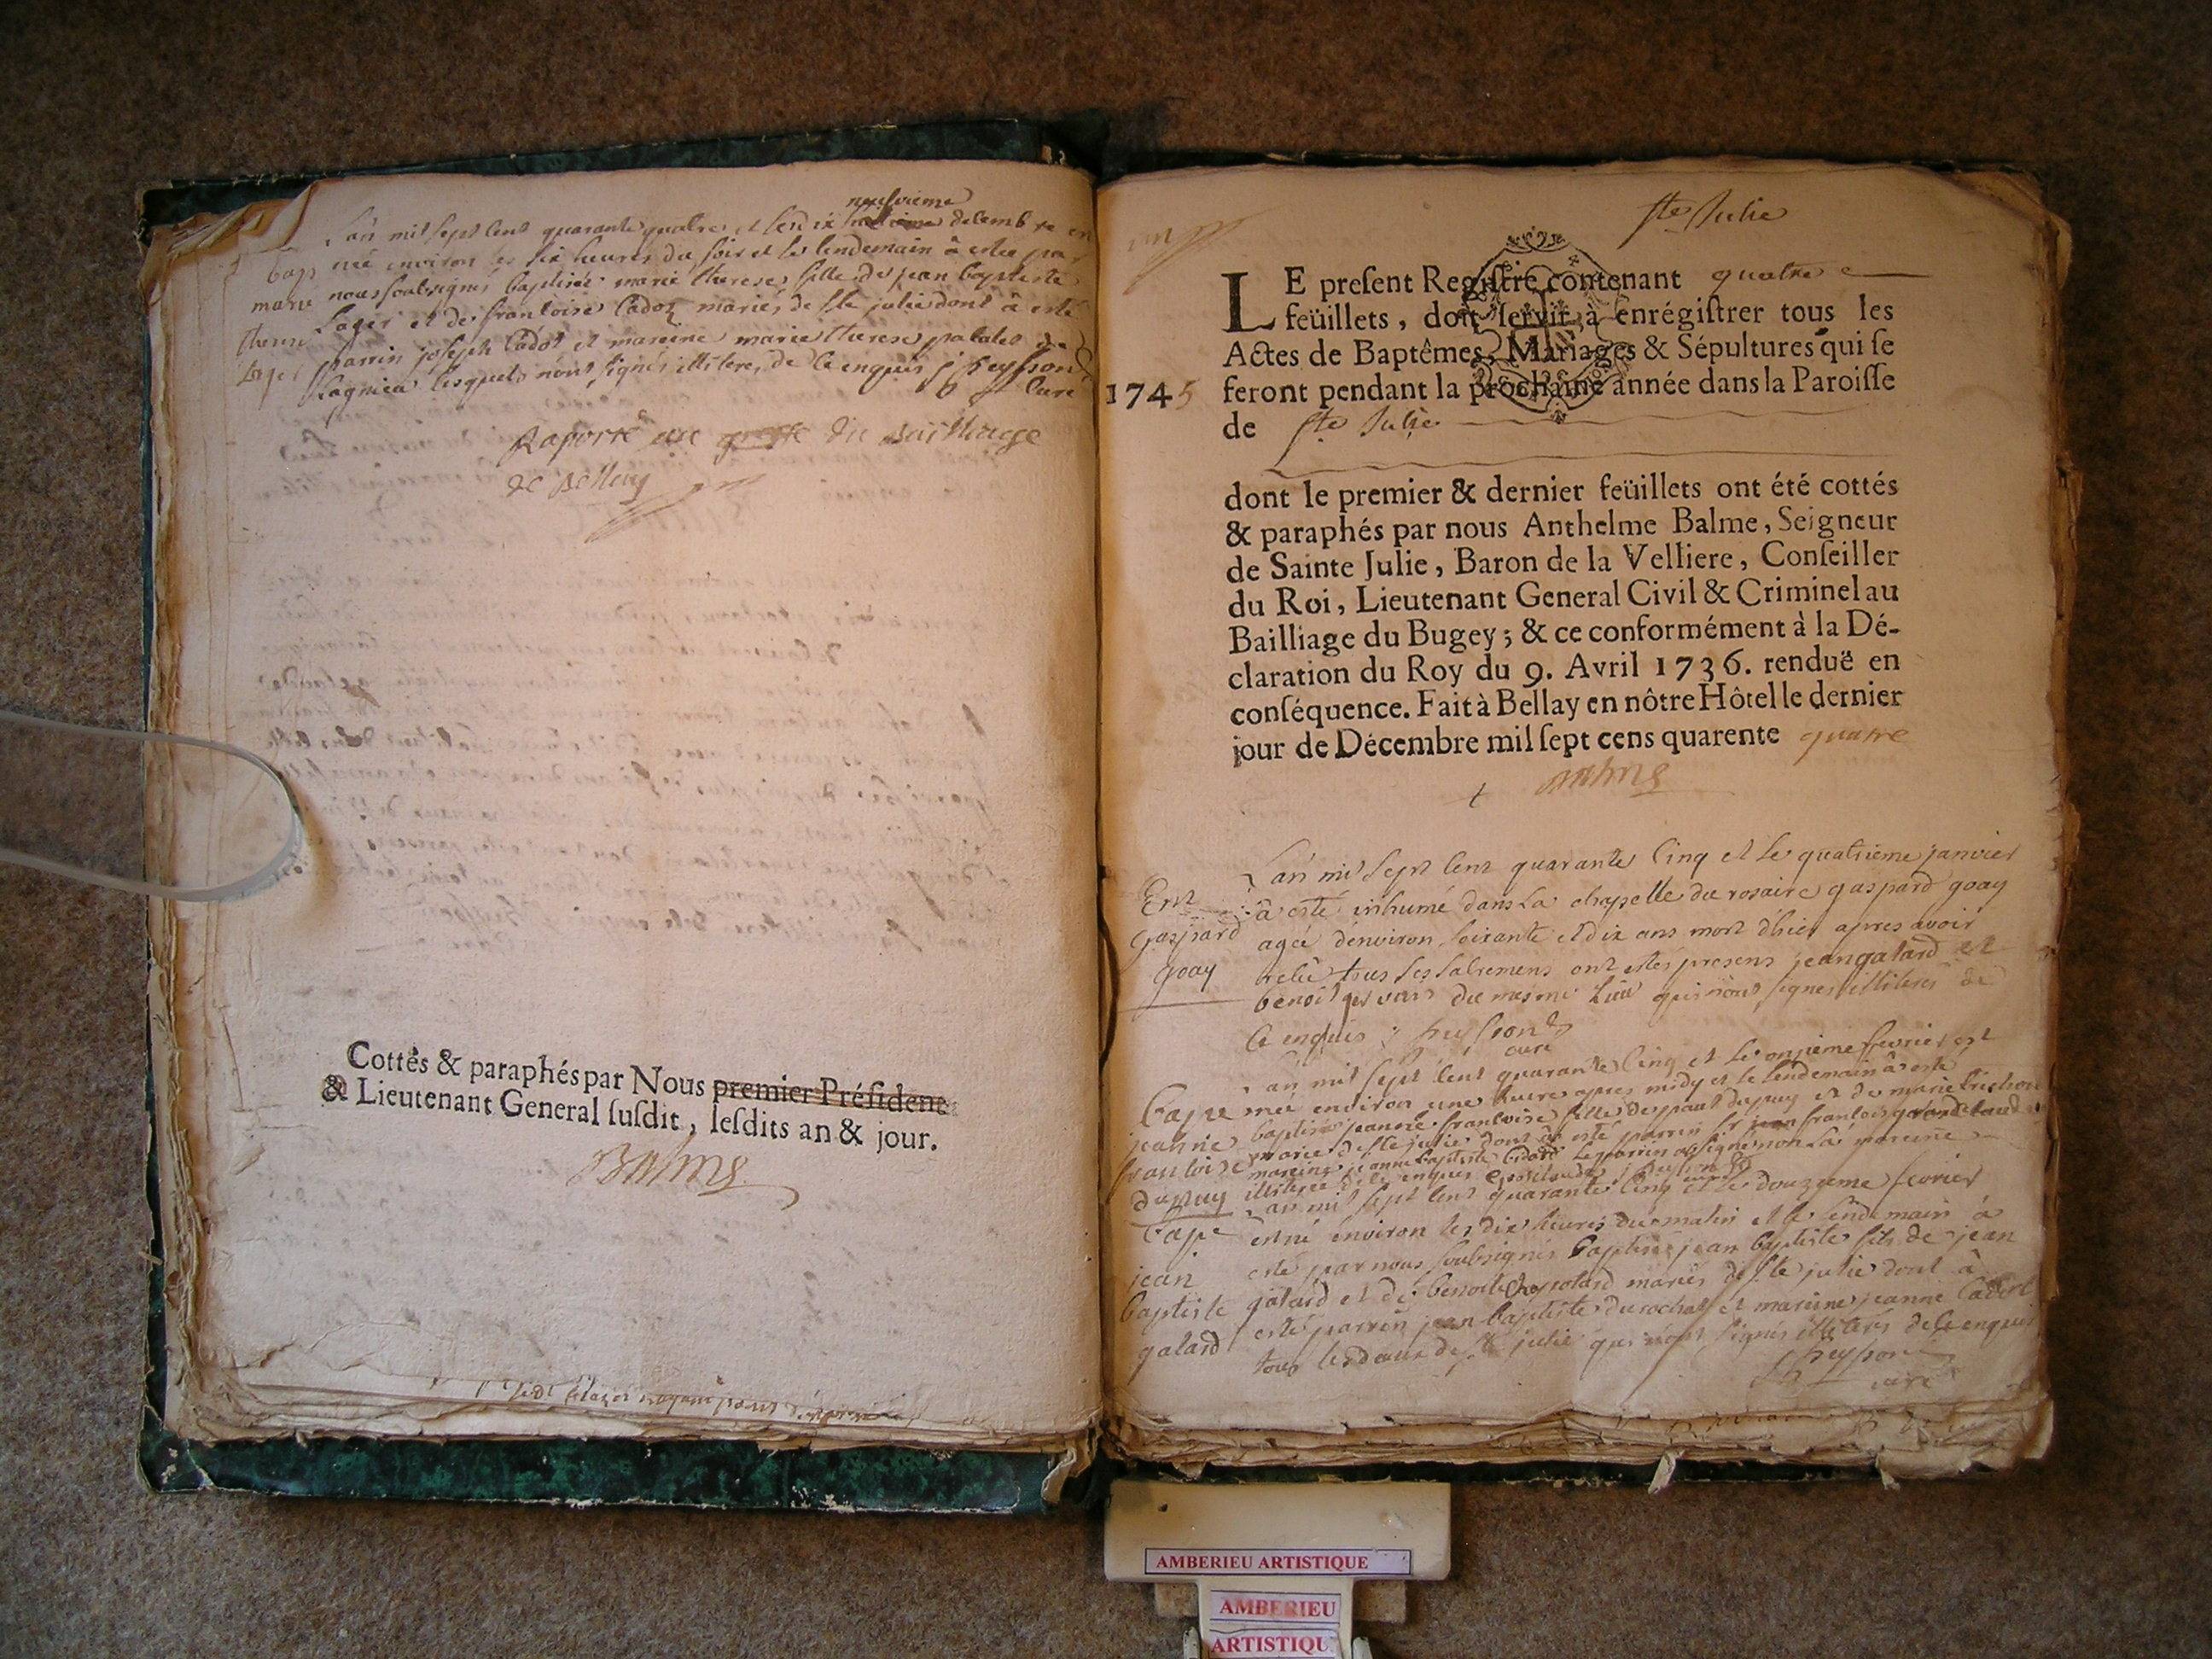 neufvieme
L'an mil sept cent quarante quatre et le dix decembre
Bap née environ les six heures du soir et le lendemain à esté par
marie nous soubsignés baptisée marie therese fille de jean baptiste
therese Lager et de francoise Cadoz mariés de Ste julie dont à esté
Lager parrin joseph Cadot et mareine marie therese de
Lagnieu lesquels n'ont signés illiteres de ce enquis j heysson
curé
Raporté au greffe du Bailliage
de Belley
Cottés & paraphés par Nous premier Président
& Lieutenant General ſuſdit, leſdits an & jour.
Balme
Ste Julie
LE preſent Regiſtre contenant quatre
feüillets, dont ſervir à enrégiſtrer tous les
Actes de Baptêmes, Mariages & Sépultures qui ſe
1745 feront pendant la prochaine année dans la Paroiſſe
de Ste Julie
dont le premier & dernier feüillets ont été cottés
& paraphés par nous Anthelme Balme, Seigneur
de Sainte Julie, Baron de la Velliere, Conſeiller
du Roi, Lieutenant General Civil & Criminel au
Bailliage du Bugey; & ce conformément à la Dé-
claration du Roy du 9. Avril 1736. renduë en
conſéquence. Fait à Bellay en nôtre Hôtel le dernier
jour de Décembre mil ſept cens quarente quatre
Balme
L'an mil sept cent quarante cinq et le quatrieme janvier
Ent à esté inhumé dans La chapelle du rosaire gaspard goay
gaspard agé d'environ soixante et dix ans mort d'hier apres avoir
goay recü tous ses sacremens ont estés presens jean galard et
benoit du mesme Lieu qui n'ont signés illiterés de
ce enquis j heysson
curé
L'an mil sept cent quarante cinq et le onzieme fevrier est
Bap née environ une heure apres midy et le lendemain à esté
jeanne baptisée jeanne francoise fille de paul dupuy et de marie brichon
francoise mariés de ste julie dont à esté parrin Sr jean francois
dupuy mareine jeanne baptiste le parrin a signé non la mareine
illiterée de ce enquis
L'an mil sept cent quarante cinq et le douzieme fevrier
Bap est né environ les dix heures du matin et le lendemain à
jean esté par nous soubsignés baptisé jean baptiste fils de jean
baptiste galard et de benoite mariés de Ste julie dont à
galard esté parrin jean baptiste durochat et mareine jeanne
tous les deux de Ste julie qui n'ont signés illiteres de ce enquis
j heysson
curé
AMBERIEU ARTISTIQUE
AMBERIEU
ARTISTIQU